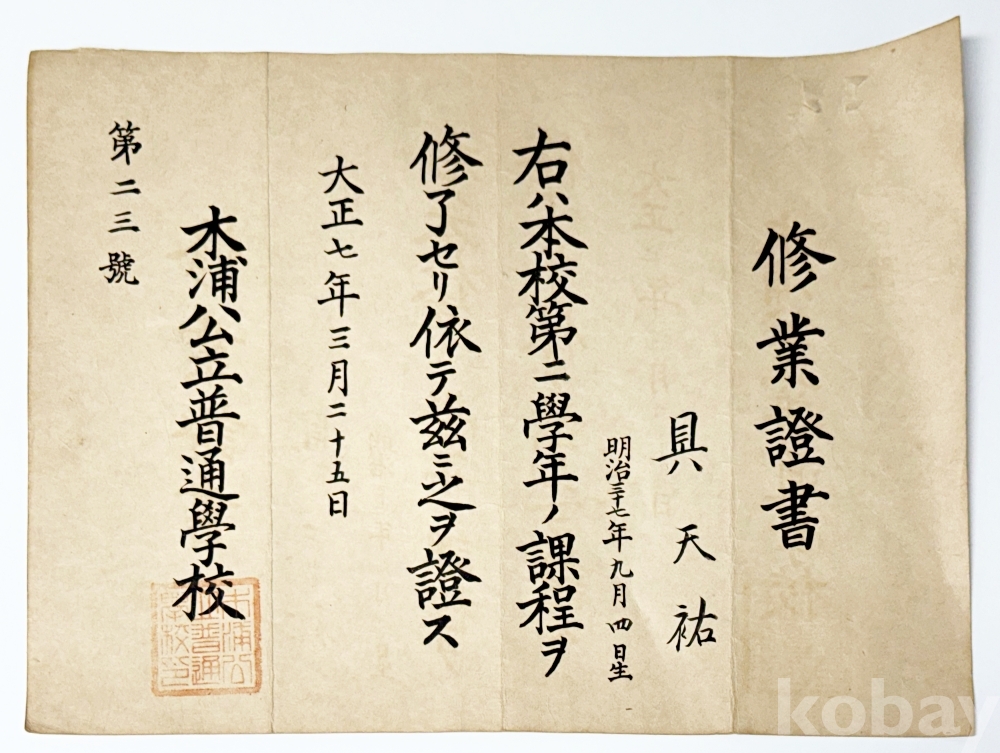 修業證書
具天祐
明治三十七年九月四日生
右ハ本校第二學年ノ課程ヲ
修了セリ依テ茲ニ之ヲ證ス
大正七年三月二十五日
木浦公立普通學校
第二三號
木浦公立普通學校印
kobay